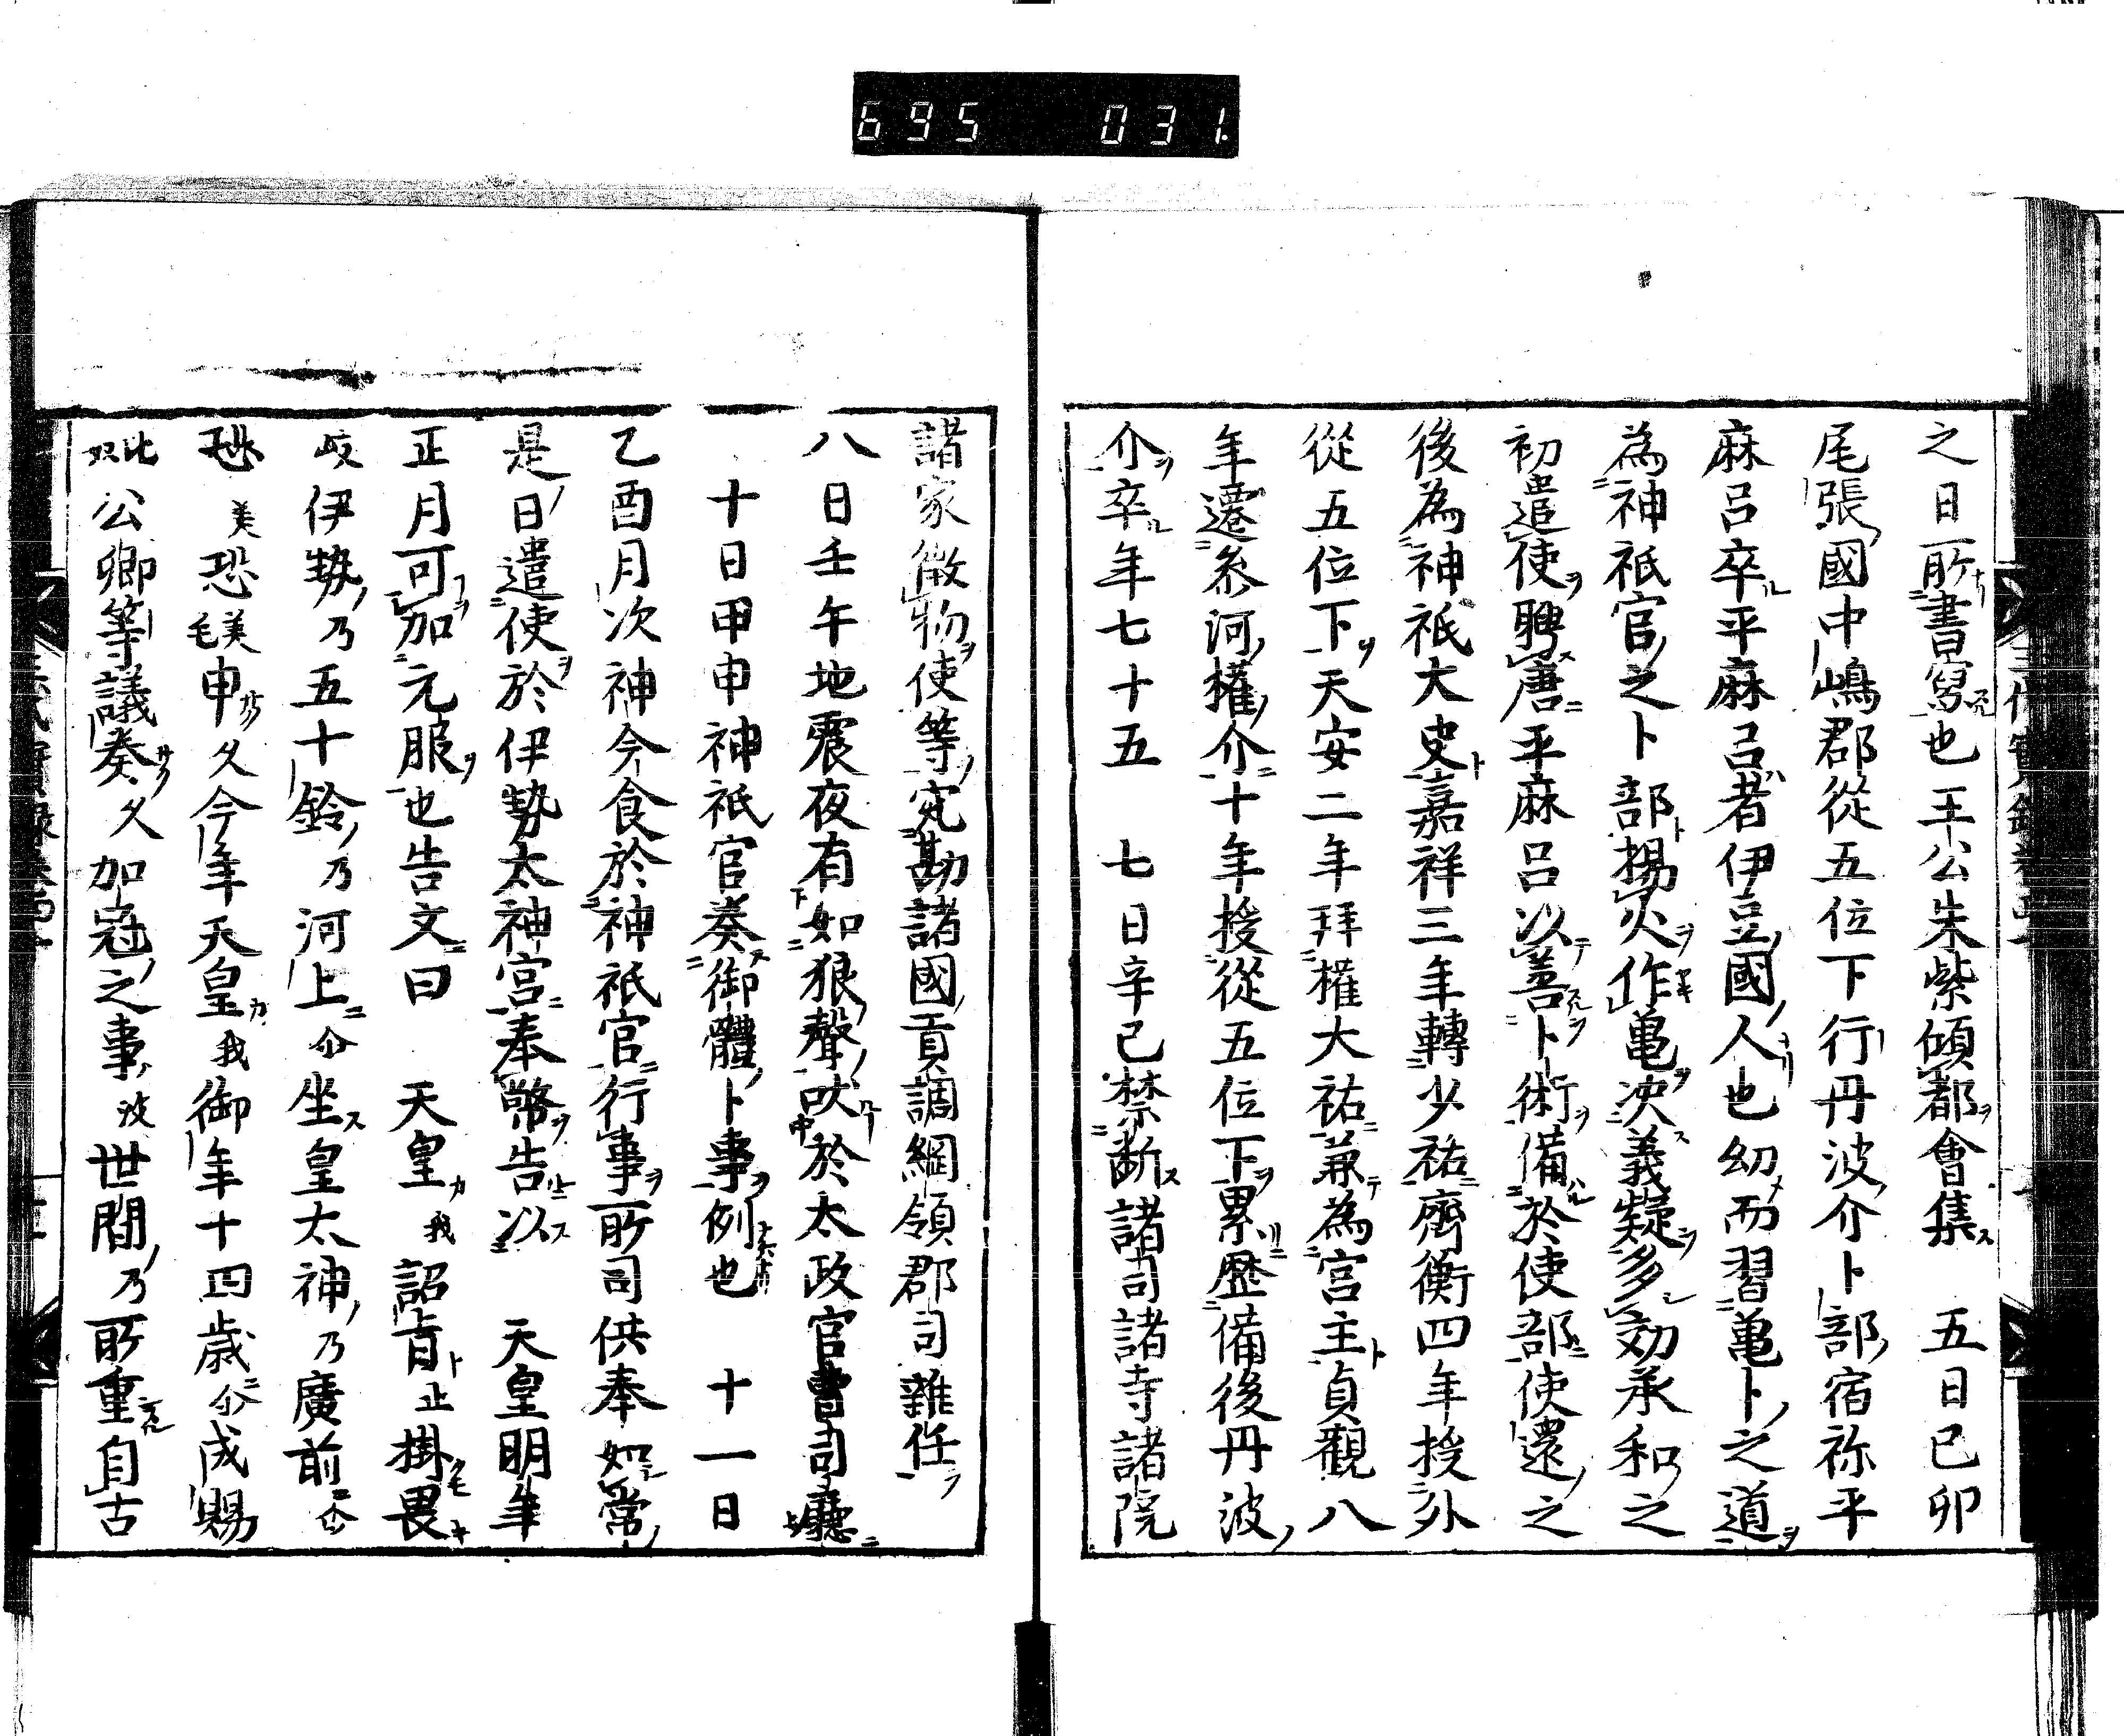 695 031
之日所書寫也王公朱紫傾都會集　五日己卯
尾張國中嶋郡從五位下行丹波介卜部宿祢平
麻呂卒平麻呂者伊豆國人也幼而習亀卜之道
為神祇官之卜部揚火作亀决義疑多効承和之
初遣使聘唐平麻呂以善卜術備於使部使還之
後為神祇大史嘉祥三年轉少祐齊衡四年授外
從五位下天安二年拜權大祐兼為宮主貞觀八
年遷参河權介十年授從五位下累歴備後丹波
介卒年七十五　七日辛巳禁断諸司諸寺諸院
諸家徴物使等宛勘諸國貢調綱領郡司雜任
八日壬午地震夜有如狼聲吠於太政官曹司廳
十日甲申神祇官奏御體卜事例也　十一日
乙酉月次神今食於神祇官行事所司供奉如常
是日遣使於伊勢太神宮奉幣告以　天皇明年
正月可加元服也告文曰　天皇我詔旨止掛畏
岐伊勢乃五十鈴乃河上尒坐皇太神乃廣前尒
恐美恐美毛申久今年天皇我御年十四歳尒成賜
比奴公卿等議奏久加冠之事波世間乃所重自古